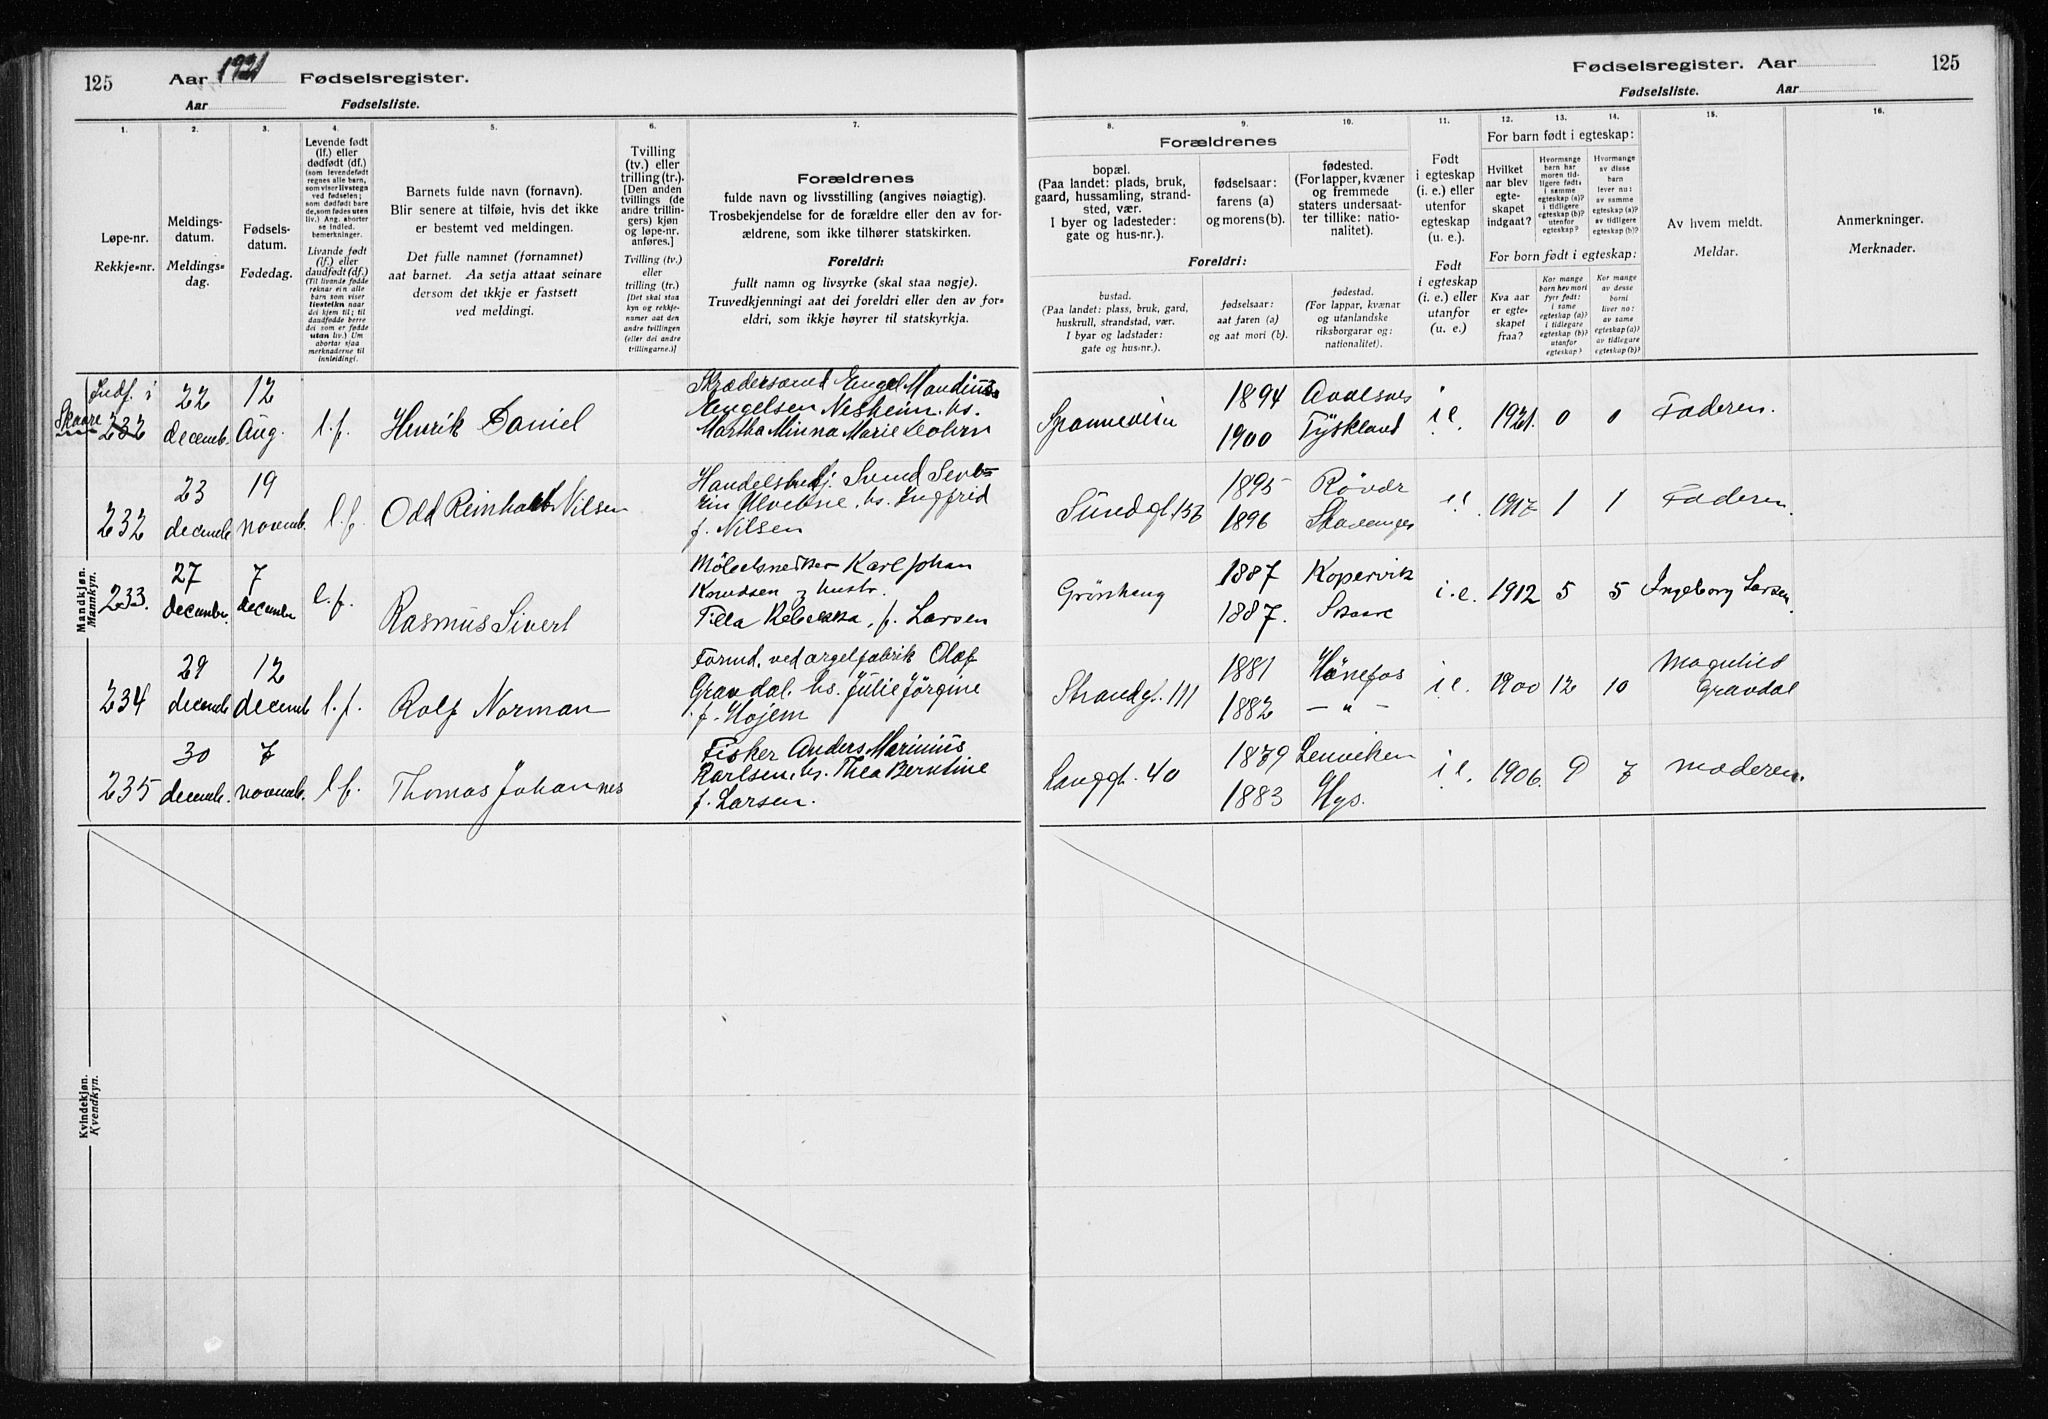 125 Aar 1921 Fødselsregister.
Aar Fødselsliste.
1. 2. 3. 4. 5. 6. 7.
Løpe-nr.
Rekkje-nr.
Meldings-
datum.
Meldings-
dag.
Fødsels-
datum.
Fødedag.
Levende født
(lf.) eller
dødfødt (df.)
(som levendefødt
regnes alle barn,
som viser livstegn
ved fødselen;
som dødfødt bare
de, som fødes uten
liv.) Ang. aborter
se indled.
bemerkninger.
Livande født
(lf.) eller
daudfødt (df.)
(Til livande fødde
reknar ein alle
barn som viser
livsteikn naar
dei kjem til; til
daudfødde berre
dei som er fødde
utan liv.) Um
abortar sjaa
merknaderne til
innleidingi.
Barnets fulde navn (fornavn).
Blir senere at tilføie, hvis det ikke
er bestemt ved meldingen.
Det fulle namnet (fornamnet)
aat barnet. Aa setja attaat seinare
dersom det ikkje er fastsett
ved meldingi.
Tvilling
(tv.) eller
trilling (tr.).
[Den anden
tvillings (de
andre trillin-
gers) kjøn
og løpe-nr.
anføres.]
Tvilling (tv.)
eller
trilling (tr.)
[Det skal staa
kyn og rekkje-
numer aat den
andre tvillingen
(eller dei andre
trillingarne.)]
Forældrenes
fulde navn og livsstilling (angives nøiagtig).
Trosbekjendelse for de forældre eller den av for-
ældrene, som ikke tilhører statskirken.
Foreldri:
fullt namn og livsyrke (skal staa nøgje).
Truvedkjenningi aat dei foreldri eller den av for-
eldri, som ikkje høyrer til statskyrkja.
Mandkjøn.
Mannkyn.
Indf. i
Skaare
232
22
decemb.
12
Aug.
l.f.
Henrik Daniel
Skrædersvend Engel Mandius
Engelsen Nesheim. hs.
Martha Minna Marie
232
23
decemb
19
novemb.
l.f.
Odd Reinholdt Nilsen
Svend Seve-
rin hs. Ingfrid
f. Nilsen
233.
27
december
7
december
l.f.
Rasmus Sivert
Møbelsnedker Karl Johan
Knudsen og hustr.
Tilla Rebekka, f. Larsen
234
29
decemb
12
decemb
l.f.
Rolf Norman
Formd. ved orgelfabrik Olaf
Gravdal. hs. Julie Jørgine
f. Hojem
235
30
decemb.
7
novemb.
l.f.
Thomas Johannes
Fisker Anders Marinius
Karlsen. hs. Thea Berntine
f. Larsen.
Kvindekjøn.
Kvendkyn.
Fødselsregister. Aar 125
Fødselsliste. Aar
8. 9. 10. 11. 12. 13. 14. 15. 16.
Forældrenes
bopæl.
(Paa landet: plads, bruk,
gaard, hussamling, strand-
sted, vær.
I byer og ladesteder:
gate og hus-nr.).
fødselsaar:
farens (a)
og morens (b).
fødested.
(For lapper, kvæner
og fremmede
staters undersaat-
ter tillike: natio-
nalitet).
Foreldri:
bustad.
(Paa landet: plass, bruk, gard,
huskrull, strandstad, vær.
I byar og ladstader:
gate og hus-nr.).
fødselsaar:
aat faren (a)
og aat mori (b).
fødestad.
(For lappar, kvænar
og utanlandske
riksborgarar og:
nationalitet).
Født
i egteskap
(i. e.) eller
utenfor
egteskap
(u. e.).
Født
i egteskap
(i. e.) eller
utanfor
(u. e.)
For barn født i egteskap:
Hvilket
aar blev
egte-
skapet
indgaat?
Hvormange
barn har
moren tid-
ligere født:
i samme
egteskap (a)?
i tidligere
egteskap (b)?
utenfor
egteskap?
Hvormange
av disse
barn
lever nu:
av samme
egteskap (a)?
av tidligere
egteskap (b)?
For born født i egteskap:
Kva aar
er egte-
skapet
fraa?
Kor mange
born hev mori
fyrr født:
i same
egteskap (a)?
i tidlegare
egteskap (b)?
utanfor
egteskap?
Kor mange
av desse
borni
liver no:
av same
egteskap (a)?
av tidlegare
egteskap (b)?
Av hvem meldt.
Meldar.
Anmerkninger.
Merknader.
1894
1900
Avalsnes
Tyskland
i.e. 1921. 0 0 Faderen.
Sundgt. 136
1895
1896
Røvær
Stavanger
i.e. 1917 1 1 Faderen.
Grønhaug
1887
1887.
Kopervik
Skaare
i.e. 1912 5 5 Ingeborg Larsen.
Strandgt. 111
1881
1882
Hønefos
— " —
i.e. 1900 12 10
Magnhild
Gravdal
Langgt. 40
1879
1883
Lenviken
i.e. 1906. 9 7 moderen.